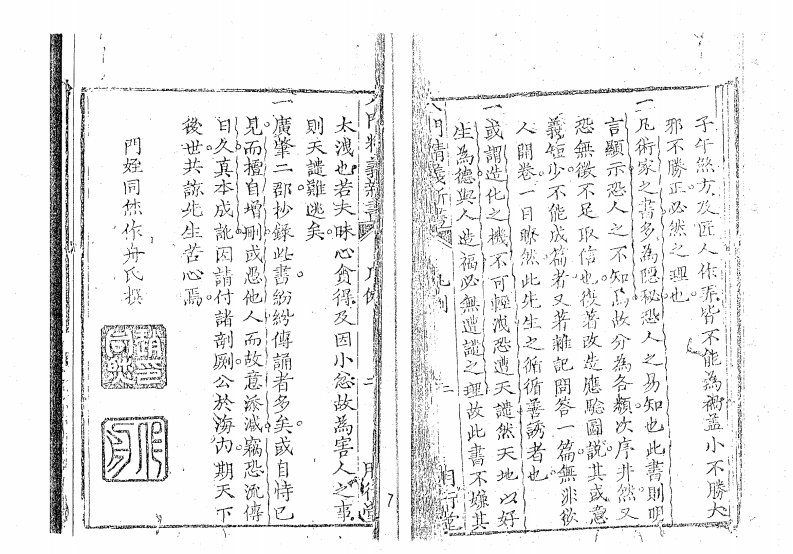 子午煞方及匠人作弄皆不能為禍蓋小不勝大
邪不勝正必然之理也
一凡術家之書多為隱秘恐人之易知也此書則明
言顯示恐人之不知焉故分為各類次序井然又
恐無徵不足取信也後著改造應驗圖說其或意
義短少不能成篇者又著雜記問答一篇無非欲
人開卷一目瞭然此先生之循循善誘者也
一或謂造化之機不可輕洩恐遭天譴然天地以好
生為德與人造福必無遭譴之理故此書不嫌其
八門精義新書 凡例 二 日行堂
太洩也若夫昧心貪得及因小忿故為害人之事
則天譴難逃矣
一廣肇二郡抄錄此書紛紛傳誦者多矣或自恃己
見而擅自增刪或慿他人而故意添減竊恐流傳
日久真本成訛因請付諸剞劂公於海內期天下
後世共諒先生苦心焉
門姪同怷作舟氏撰